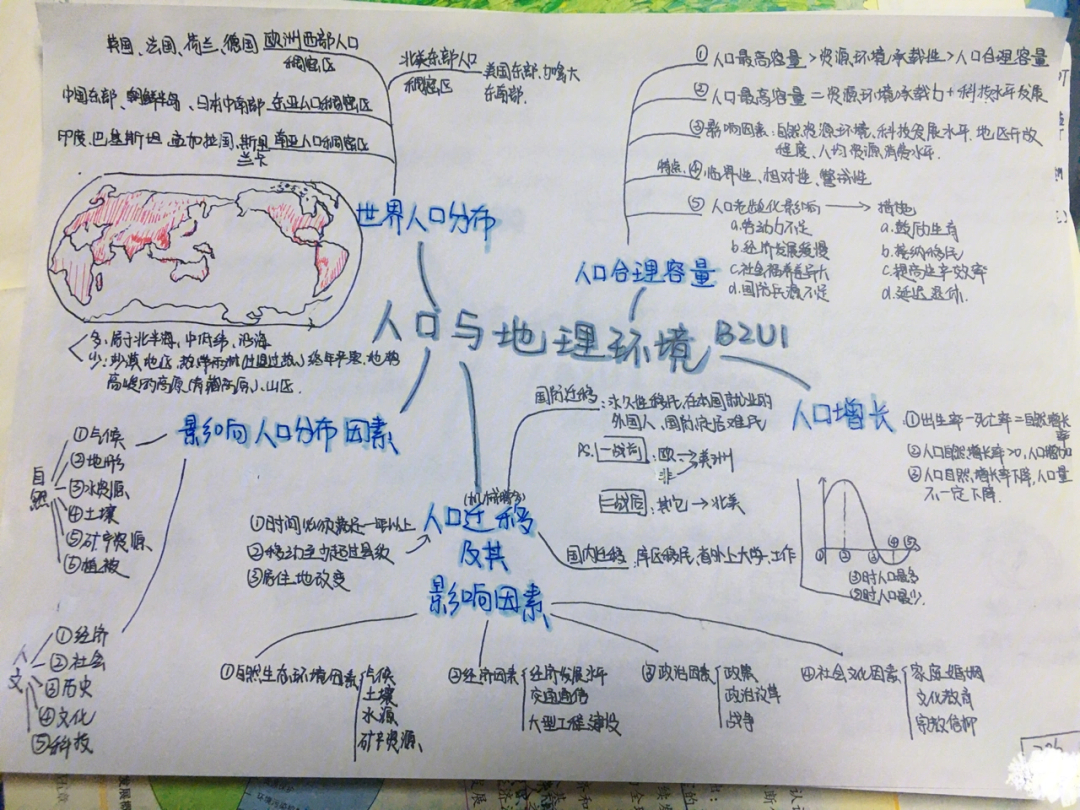 英国、法国、荷兰、德国 欧洲西部人口
稠密区
中国东部、朝鲜半岛、日本中南部 东亚人口稠密区
印度、巴基斯坦、孟加拉国、斯里 南亚人口稠密区
兰卡
北美东部人口
稠密区
美国东部、加拿大
东南部.
世界人口分布
多:居于北半球,中低纬,沿海
少:沙漠地区,热带雨林(但
高峻的高原(青藏高原)、山区.
人口合理容量
①人口最高容量>资源环境承载性>人口合理容量
②人口最高容量=资源环境承载力+科技水平发展
③影响因素:自然资源环境、科技发展水平、地区开放
程度、人均资源消费水平.
特点:④临界性、相对性、警戒性
⑤人口老龄化影响→措施
a.劳动力不足 a.鼓励生育
b.经济发展缓慢 b.接纳移民
c.社会福利差异大 c.提高生产效率
d.国防兵源不足 d.延迟退休.
人口与地理环境 B2U1
影响人口分布因素
自然
①气候
②地形
③水资源
④土壤
⑤矿产资源、
⑥植被
人文
①经济
②社会
③历史
④文化
⑤科技
(机械增多)
人口迁移
及其
影响因素
①时间必须满足一年以上
②移动空间超过县级
③居住地改变
国际迁移:永久性移民,在本国就业的
外国人、国际定居难民
PS. 一战后:欧→美洲
非
二战后:其它→北美
国内迁移:库区移民,省外上大学、工作
人口增长
①出生率-死亡率=自然增长
率
②人口自然增长率>0,人口增加
③人口自然增长率下降,人口量
不一定下降.
① ② ③ ④ ⑤
③时人口最多
⑤时人口最少.
①自然生态环境因素
气候
土壤
水源
矿产资源、
②经济因素
经济发展水平
交通通信
大型工程建设
③政治因素
政策
政治改革
战争
④社会文化因素
家庭婚姻
文化教育
宗教信仰